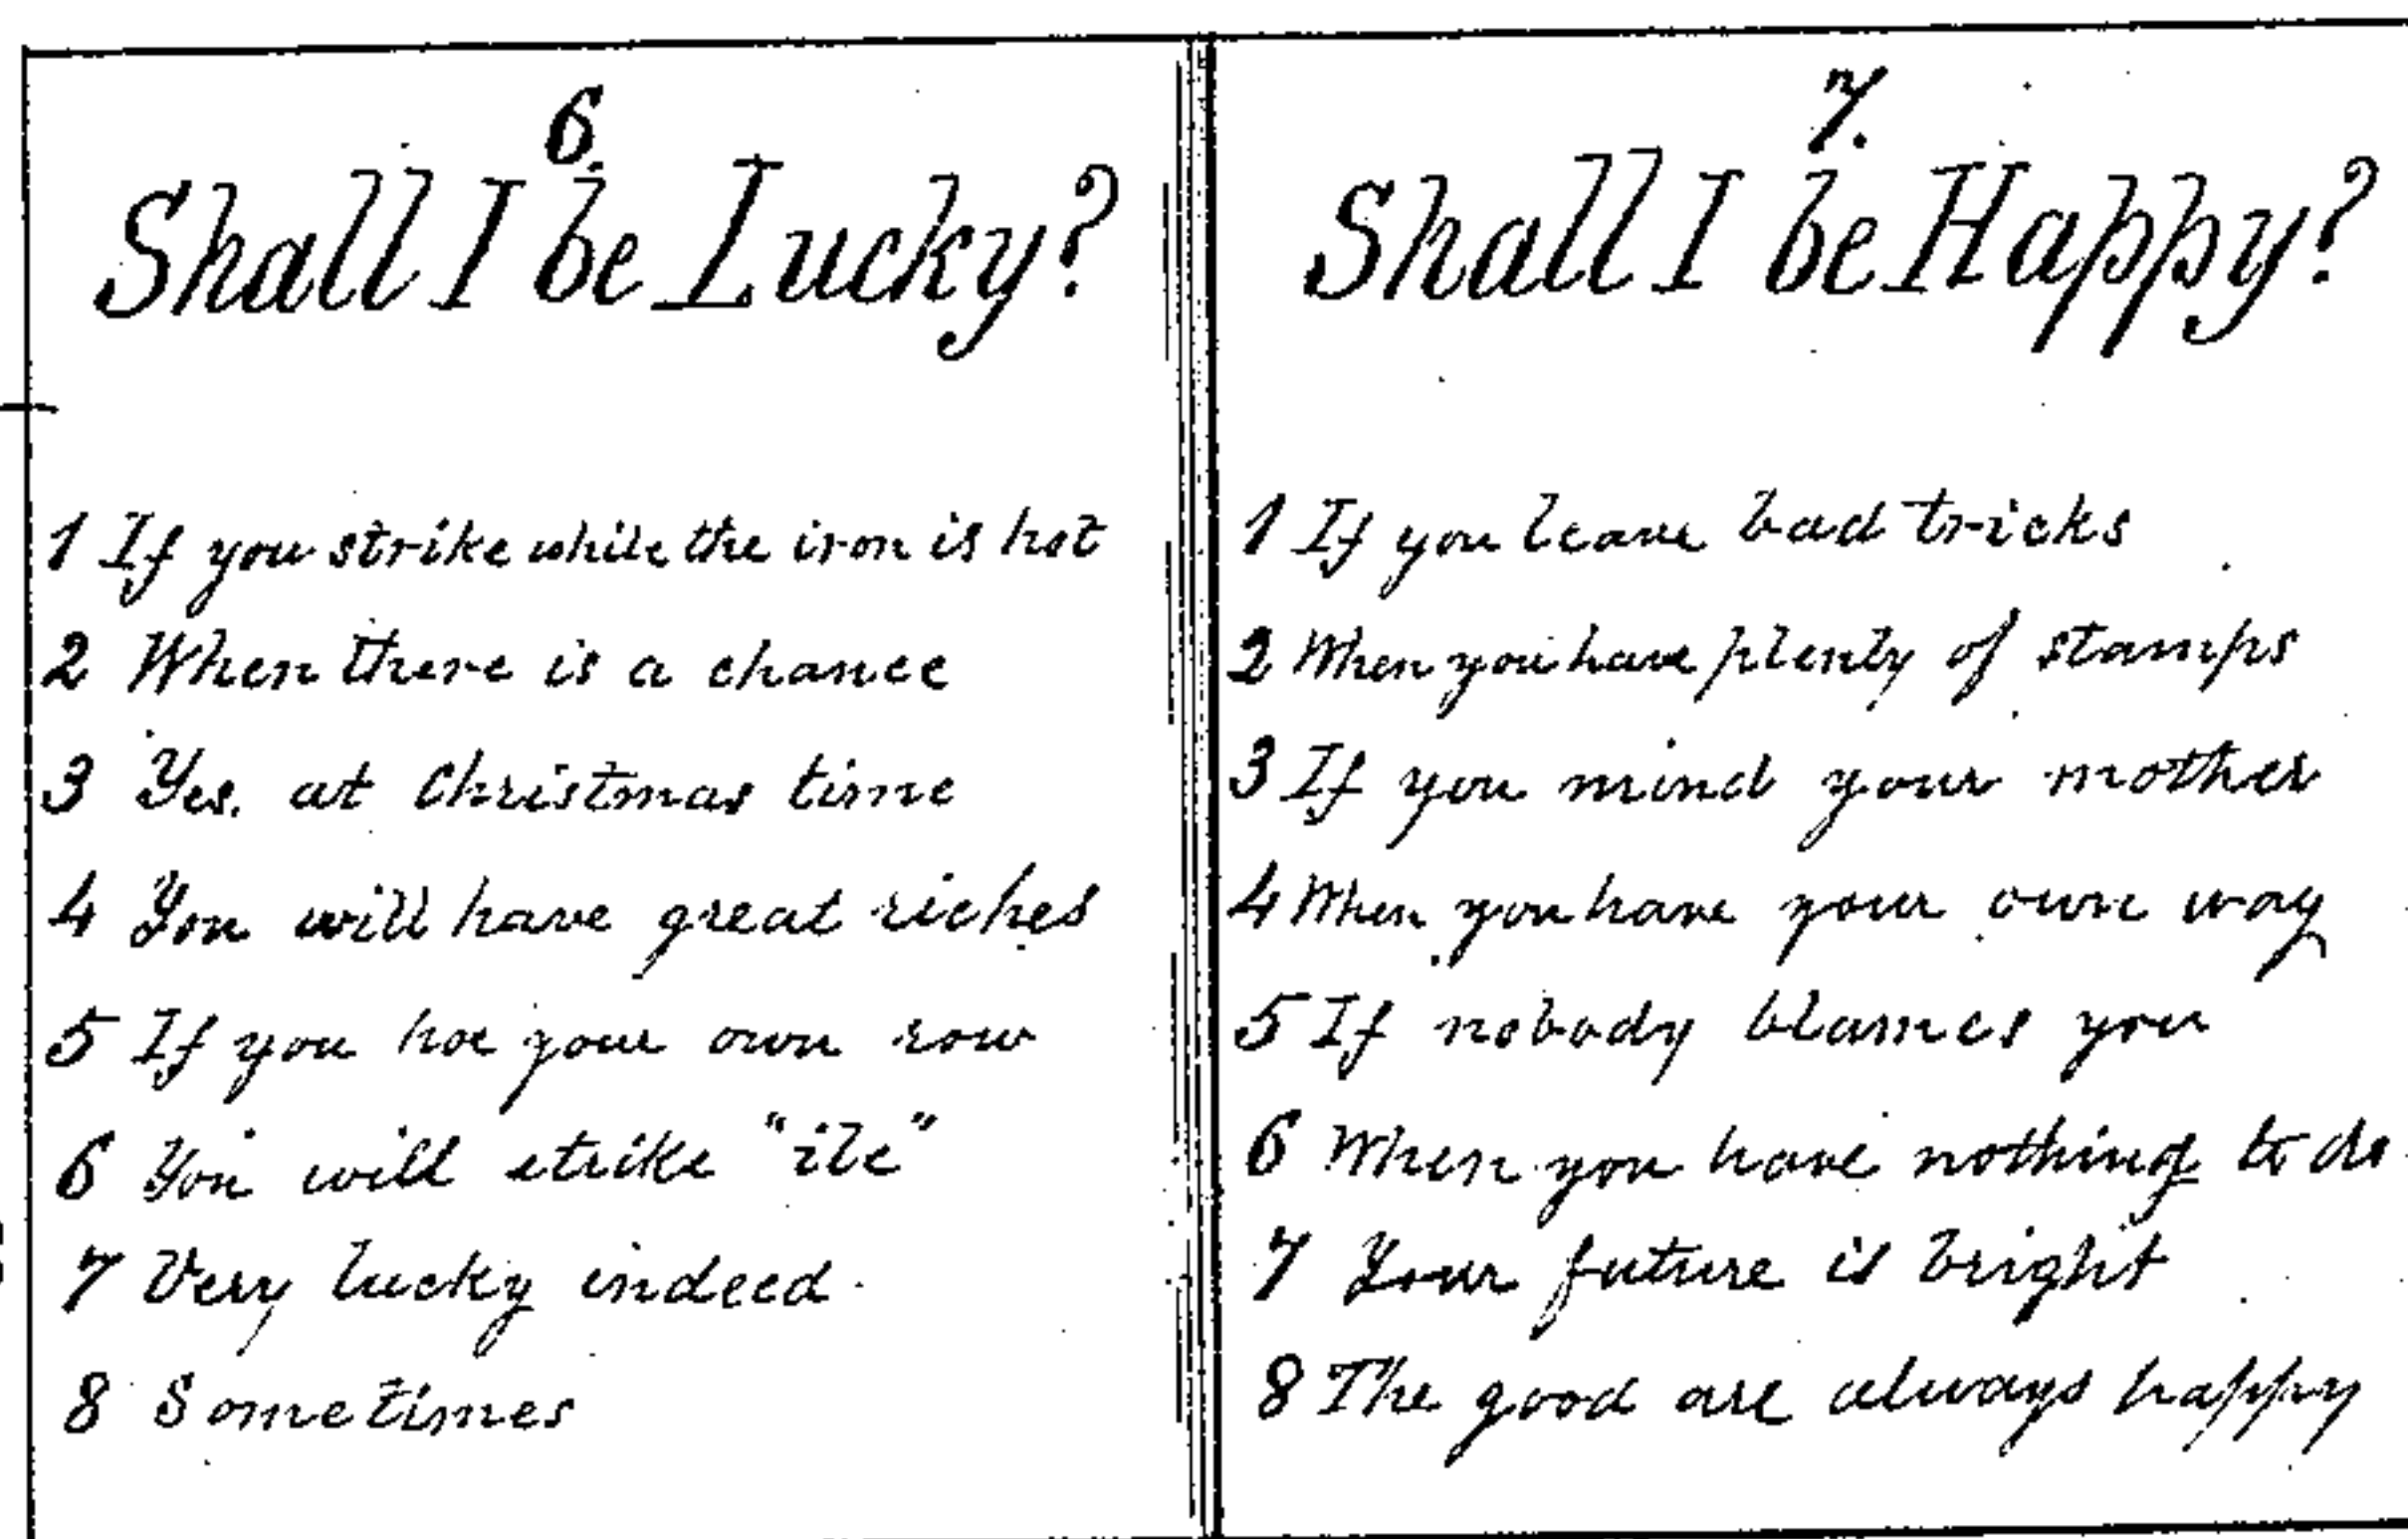 6.
Shall I be Lucky?
1 If you strike while the iron is hot
2 When there is a chance
3 Yes. at Christmas time
4 You will have great riches
5 If you hoe your own row
6 You will strike "ile"
7 Very lucky indeed
8 Sometimes
7.
Shall I be Happy?
1 If you leave bad tricks
2 When you have plenty of stamps
3 If you mind your mother
4 When you have your own way
5 If nobody blames you
6 When you have nothing to do
7 Your future is bright
8 The good are always happy